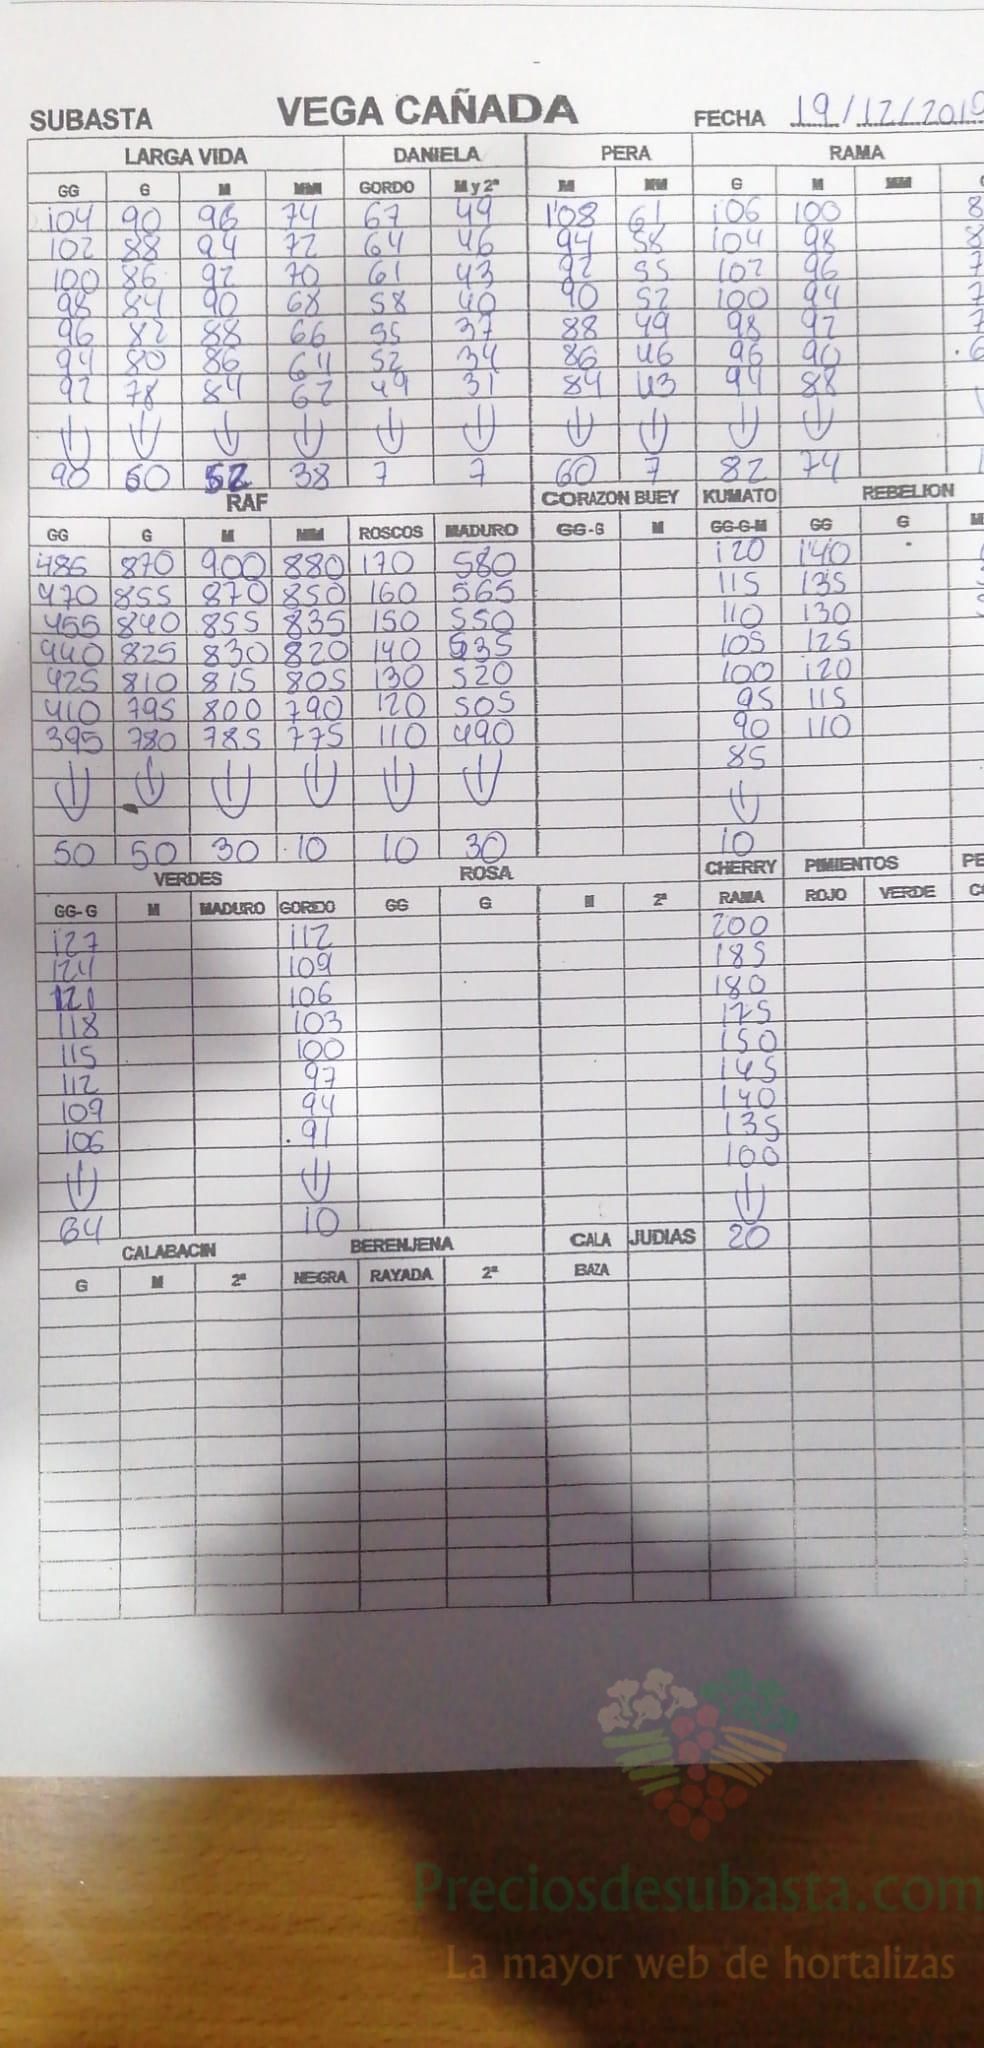 SUBASTA VEGA CAÑADA FECHA 19/12/2019
LARGA VIDA DANIELA PERA RAMA
GG G M MM GORDO M y 2ª M MM G M MM
104 90 96 74 67 49 108 61 106 100 8
102 88 94 72 64 46 94 58 104 98 8
100 86 92 70 61 43 92 55 102 96 7
98 84 90 68 58 40 90 52 100 94 7
96 82 88 66 55 37 88 49 98 92 7
94 80 86 64 52 34 86 46 96 90 6
92 78 84 62 49 31 84 43 94 88
90 60 52 38 7 7 60 7 82 74
RAF CORAZON BUEY KUMATO REBELION
GG G M MM ROSCOS MADURO GG-G M GG-G-M GG G
486 870 900 880 170 580 120 140
470 855 870 850 160 565 115 135
455 840 855 835 150 550 110 130
440 825 830 820 140 535 105 125
425 810 815 805 130 520 100 120
410 795 800 790 120 505 95 115
395 780 785 775 110 490 90 110
85
50 50 30 10 10 30 10
VERDES ROSA CHERRY PIMIENTOS PE
GG-G M MADURO GORDO GG G M 2ª RAMA ROJO VERDE
127 112 200
124 109 185
121 106 180
118 103 175
115 100 150
112 97 145
109 94 140
106 91 135
100
64 10 20
CALABACIN BERENJENA CALA JUDIAS
G M 2ª NEGRA RAYADA 2ª BAZA
Preciosdesubasta.com
La mayor web de hortalizas